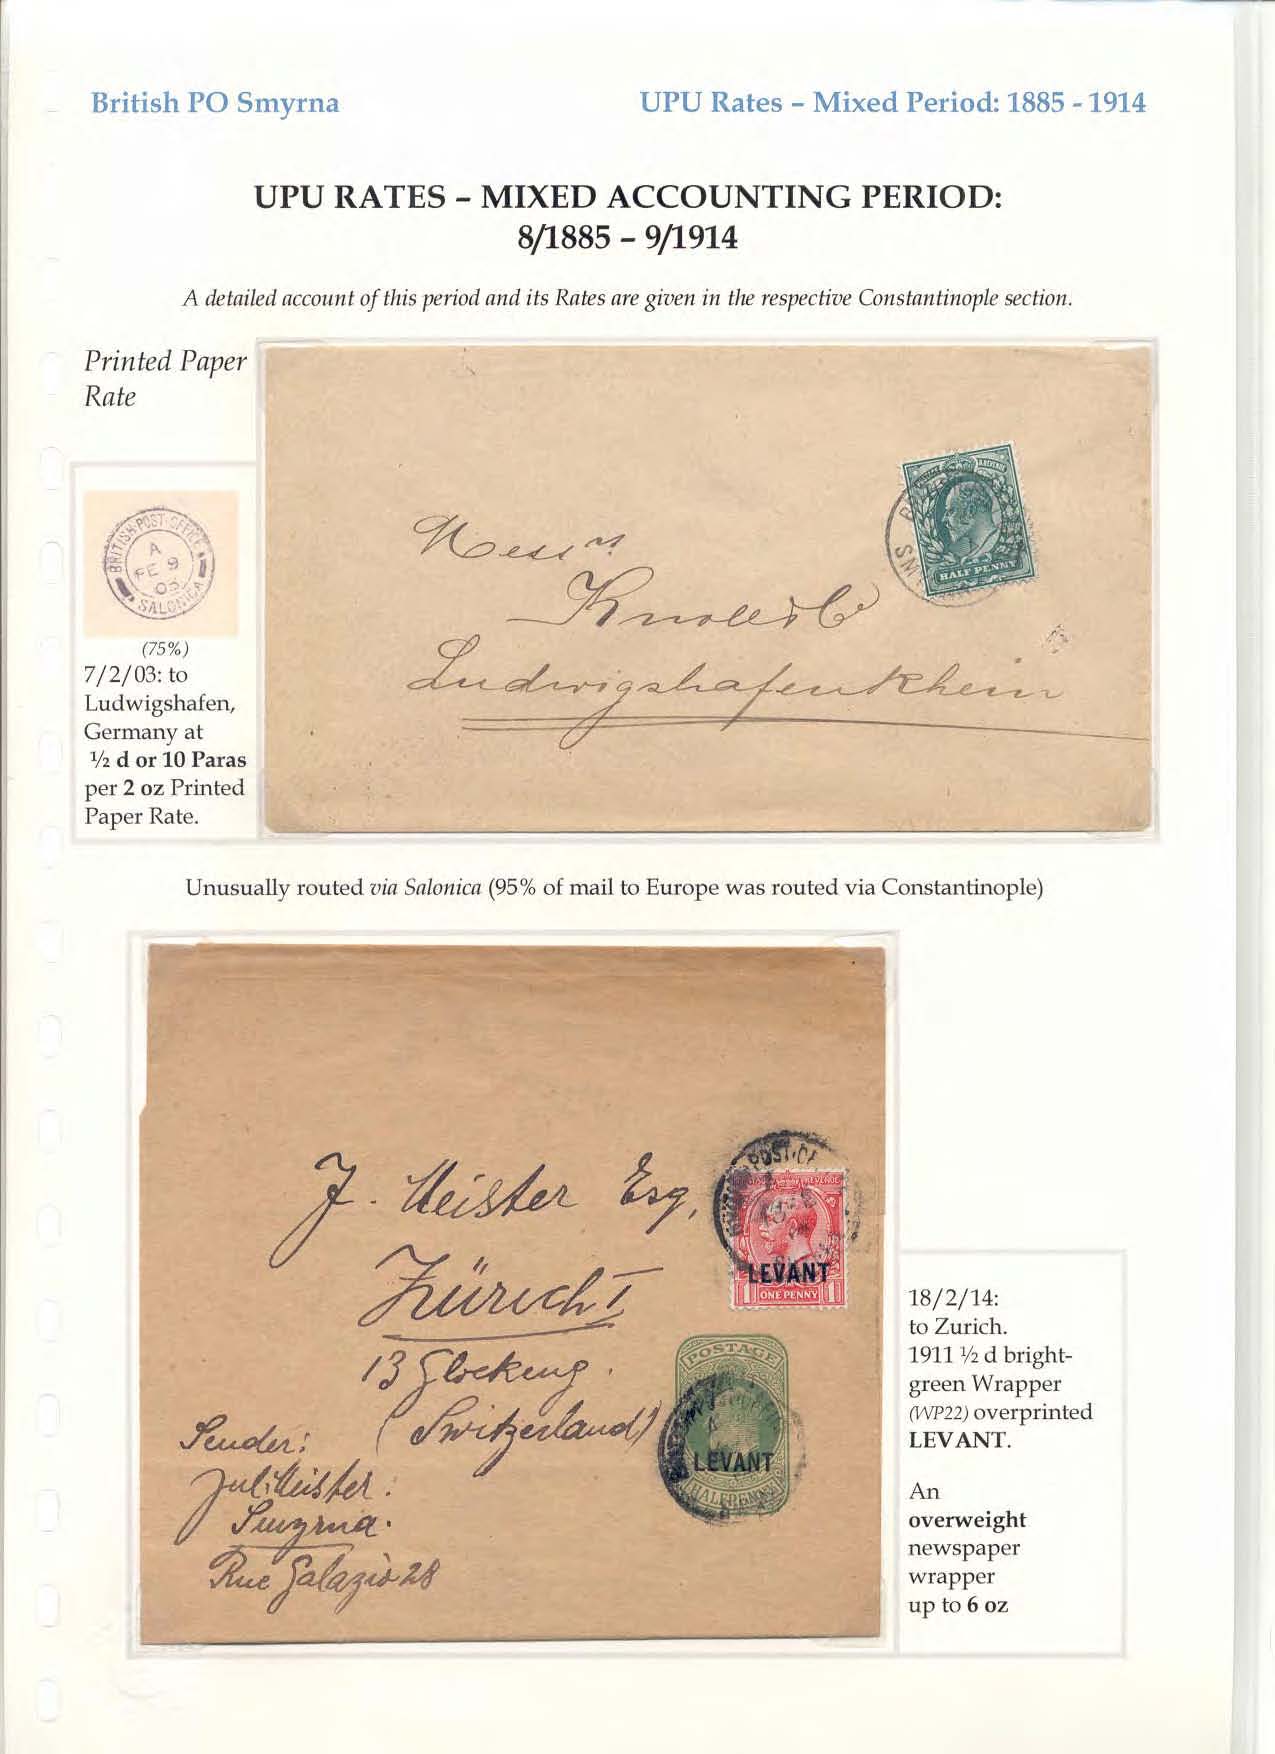 British PO Smyrna
UPU Rates – Mixed Period: 1885 - 1914
UPU RATES – MIXED ACCOUNTING PERIOD:
8/1885 – 9/1914
A detailed account of this period and its Rates are given in the respective Constantinople section.
Printed Paper
Rate
HALF PENNY
Messrs
Knoll & Co
Ludwigshafen Rhein
BRITISH POST OFFICE
A
FE 9
03
SALONICA
(75%)
7/2/03: to
Ludwigshafen,
Germany at
½ d or 10 Paras
per 2 oz Printed
Paper Rate.
Unusually routed via Salonica (95% of mail to Europe was routed via Constantinople)
J. Meister Esq,
Zürich I
13 Glockeng.
(Switzerland)
Sender:
Jul. Meister.
Smyrna.
Rue Galazio 28
LEVANT
ONE PENNY
POSTAGE
LEVANT
HALFPENNY
18/2/14:
to Zurich.
1911 ½ d bright-
green Wrapper
(WP22) overprinted
LEVANT.
An
overweight
newspaper
wrapper
up to 6 oz